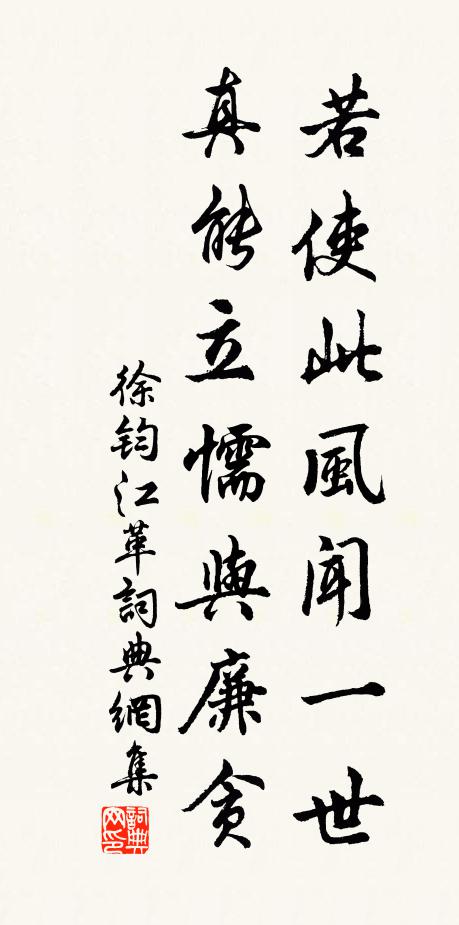 若使此風聞一世
真能立懦與廉貪
徐鈞江革詞典網集
詞典网印